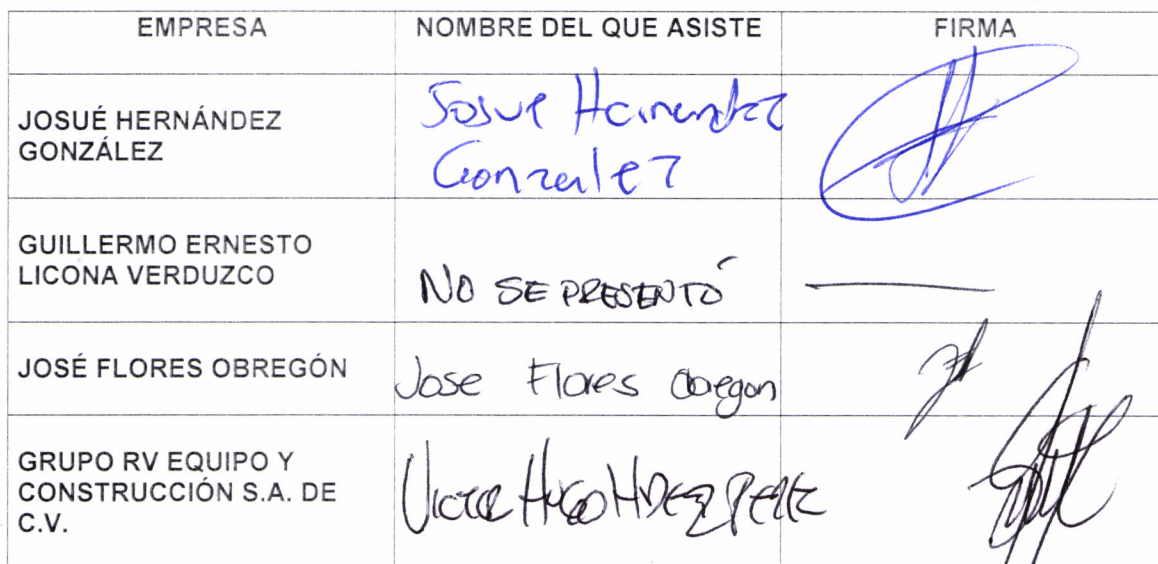 EMPRESA NOMBRE DEL QUE ASISTE FIRMA
JOSUÉ HERNÁNDEZ
GONZÁLEZ
Josue Hernandez
Gonzalez
GUILLERMO ERNESTO
LICONA VERDUZCO
NO SE PRESENTÓ
JOSÉ FLORES OBREGÓN
Jose Flores Obregon
GRUPO RV EQUIPO Y
CONSTRUCCIÓN S.A. DE
C.V.
VICTOR HUGO HDEZ PEREZ